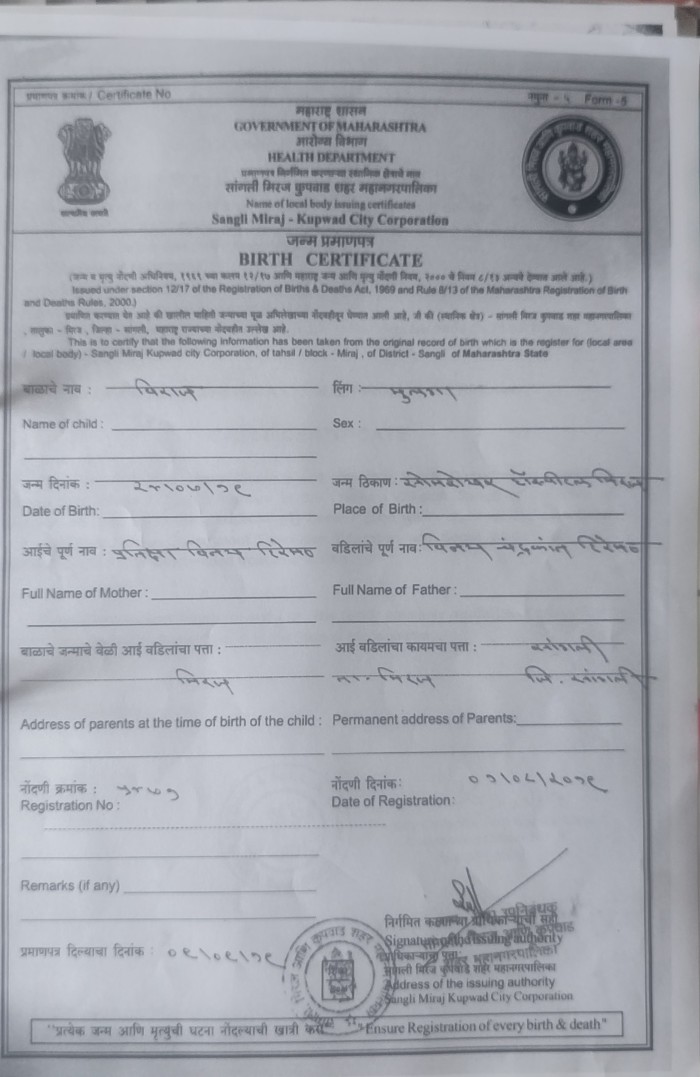 प्रमाणपत्र क्रमांक / Certificate No नमुना - ५ Form -5
महाराष्ट्र शासन
GOVERNMENT OF MAHARASHTRA
आरोग्य विभाग
HEALTH DEPARTMENT
प्रमाणपत्र निर्गमित करणाऱ्या स्थानिक क्षेत्राचे नाव
सांगली मिरज कुपवाड शहर महानगरपालिका
Name of local body issuing certificates
Sangli Miraj - Kupwad City Corporation
सत्यमेव जयते
जन्म प्रमाणपत्र
BIRTH CERTIFICATE
(जन्म व मृत्यु नोंदणी अधिनियम, १९६९ च्या कलम १२/१७ आणि महाराष्ट्र जन्म आणि मृत्यु नोंदणी नियम, २००० चे नियम ८/१३ अन्वये देण्यात आले आहे.)
Issued under section 12/17 of the Registration of Births & Deaths Act, 1969 and Rule 8/13 of the Maharashtra Registration of Birth
and Deaths Rules, 2000.)
प्रमाणित करण्यात येत आहे की खालील माहिती जन्माच्या मूळ अभिलेखाच्या नोंदवहीतून घेण्यात आली आहे, जी की (स्थानिक क्षेत्र) - सांगली मिरज कुपवाड शहर महानगरपालिका
, तालुका - मिरज, जिल्हा - सांगली, महाराष्ट्र राज्याच्या नोंदवहीत उल्लेख आहे.
This is to certify that the following information has been taken from the original record of birth which is the register for (local area
/ local body) - Sangli Miraj Kupwad city Corporation, of tahsil / block - Miraj, of District - Sangli of Maharashtra State
बाळाचे नाव : विराज लिंग : मुलगा
Name of child : Sex :
जन्म दिनांक : २४/०७/१९ जन्म ठिकाण : हॉस्पीटल मिरज
Date of Birth: Place of Birth :
आईचे पूर्ण नाव : प्रतिक्षा विनय हिरेमठ वडिलांचे पूर्ण नाव: विनय चंद्रकांत हिरेमठ
Full Name of Mother : Full Name of Father :
बाळाचे जन्माचे वेळी आई वडिलांचा पत्ता : आई वडिलांचा कायमचा पत्ता : सांगली
मिरज ता.- मिरज जि. सांगली
Address of parents at the time of birth of the child : Permanent address of Parents:
नोंदणी क्रमांक : नोंदणी दिनांक: ०१/०८/२०१९
Registration No : Date of Registration:
Remarks (if any)
निर्गमित करणाऱ्या प्राधिकाऱ्याची सही
Signature of the issuing authority
प्रमाणपत्र दिल्याचा दिनांक : ०९/०९/१९
सांगली मिरज कुपवाड शहर महानगरपालिका
Address of the issuing authority
Sangli Miraj Kupwad City Corporation
"प्रत्येक जन्म आणि मृत्युची घटना नोंदल्याची खात्री करा" "Ensure Registration of every birth & death"